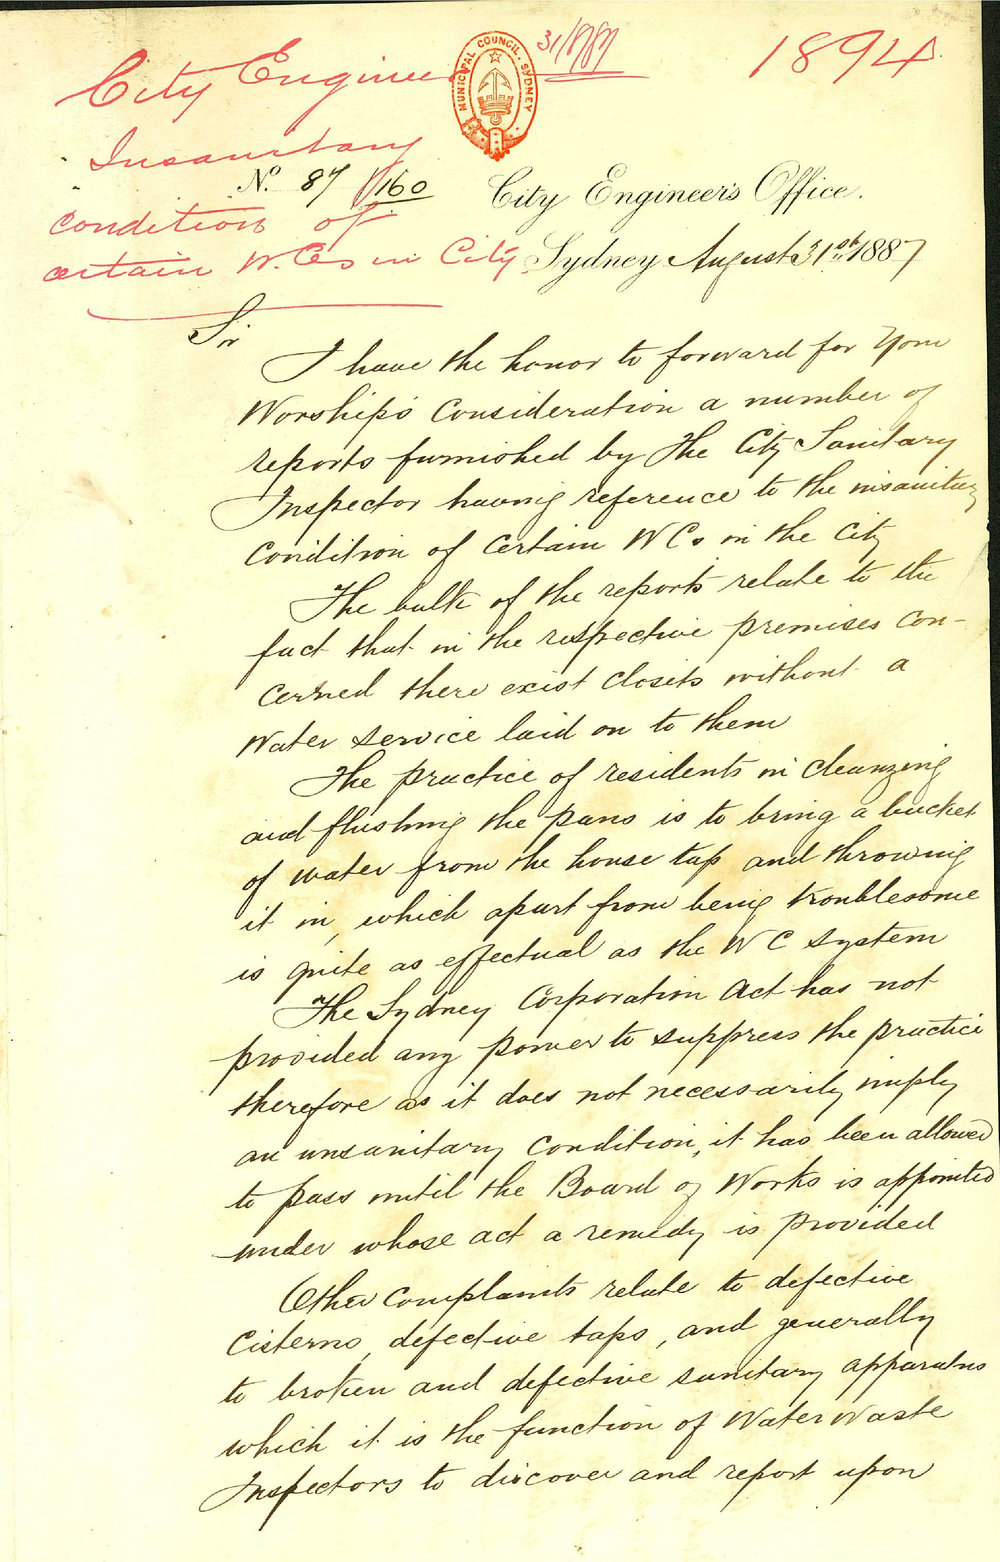 31/8/87
1894
City Engineer
MUNICIPAL COUNCIL. SYDNEY
Insanitary
No. 87/160
City Engineer's Office.
condition of
certain W.Cs in City
Sydney August 31st 1887
Sir
I have the honor to forward for Your
Worship's consideration a number of
reports furnished by the City Sanitary
Inspector having reference to the insanitary
condition of certain WCs in the City
The bulk of the reports relate to the
fact that in the respective premises con-
cerned there exist closets without a
Water service laid on to them
The practice of residents in cleanzing
and flushing the pans is to bring a bucket
of water from the house tap and throwing
it in, which apart from being troublesome
is quite as effectual as the WC system
The Sydney Corporation Act has not
provided any power to suppress the practice
therefore as it does not necessarily imply
an unsanitary condition, it has been allowed
to pass until the Board of Works is appointed
under whose act a remedy is provided
Other complaints relate to defective
cisterns, defective taps, and generally
to broken and defective sanitary apparatus
which it is the function of Water Waste
Inspectors to discover and report upon